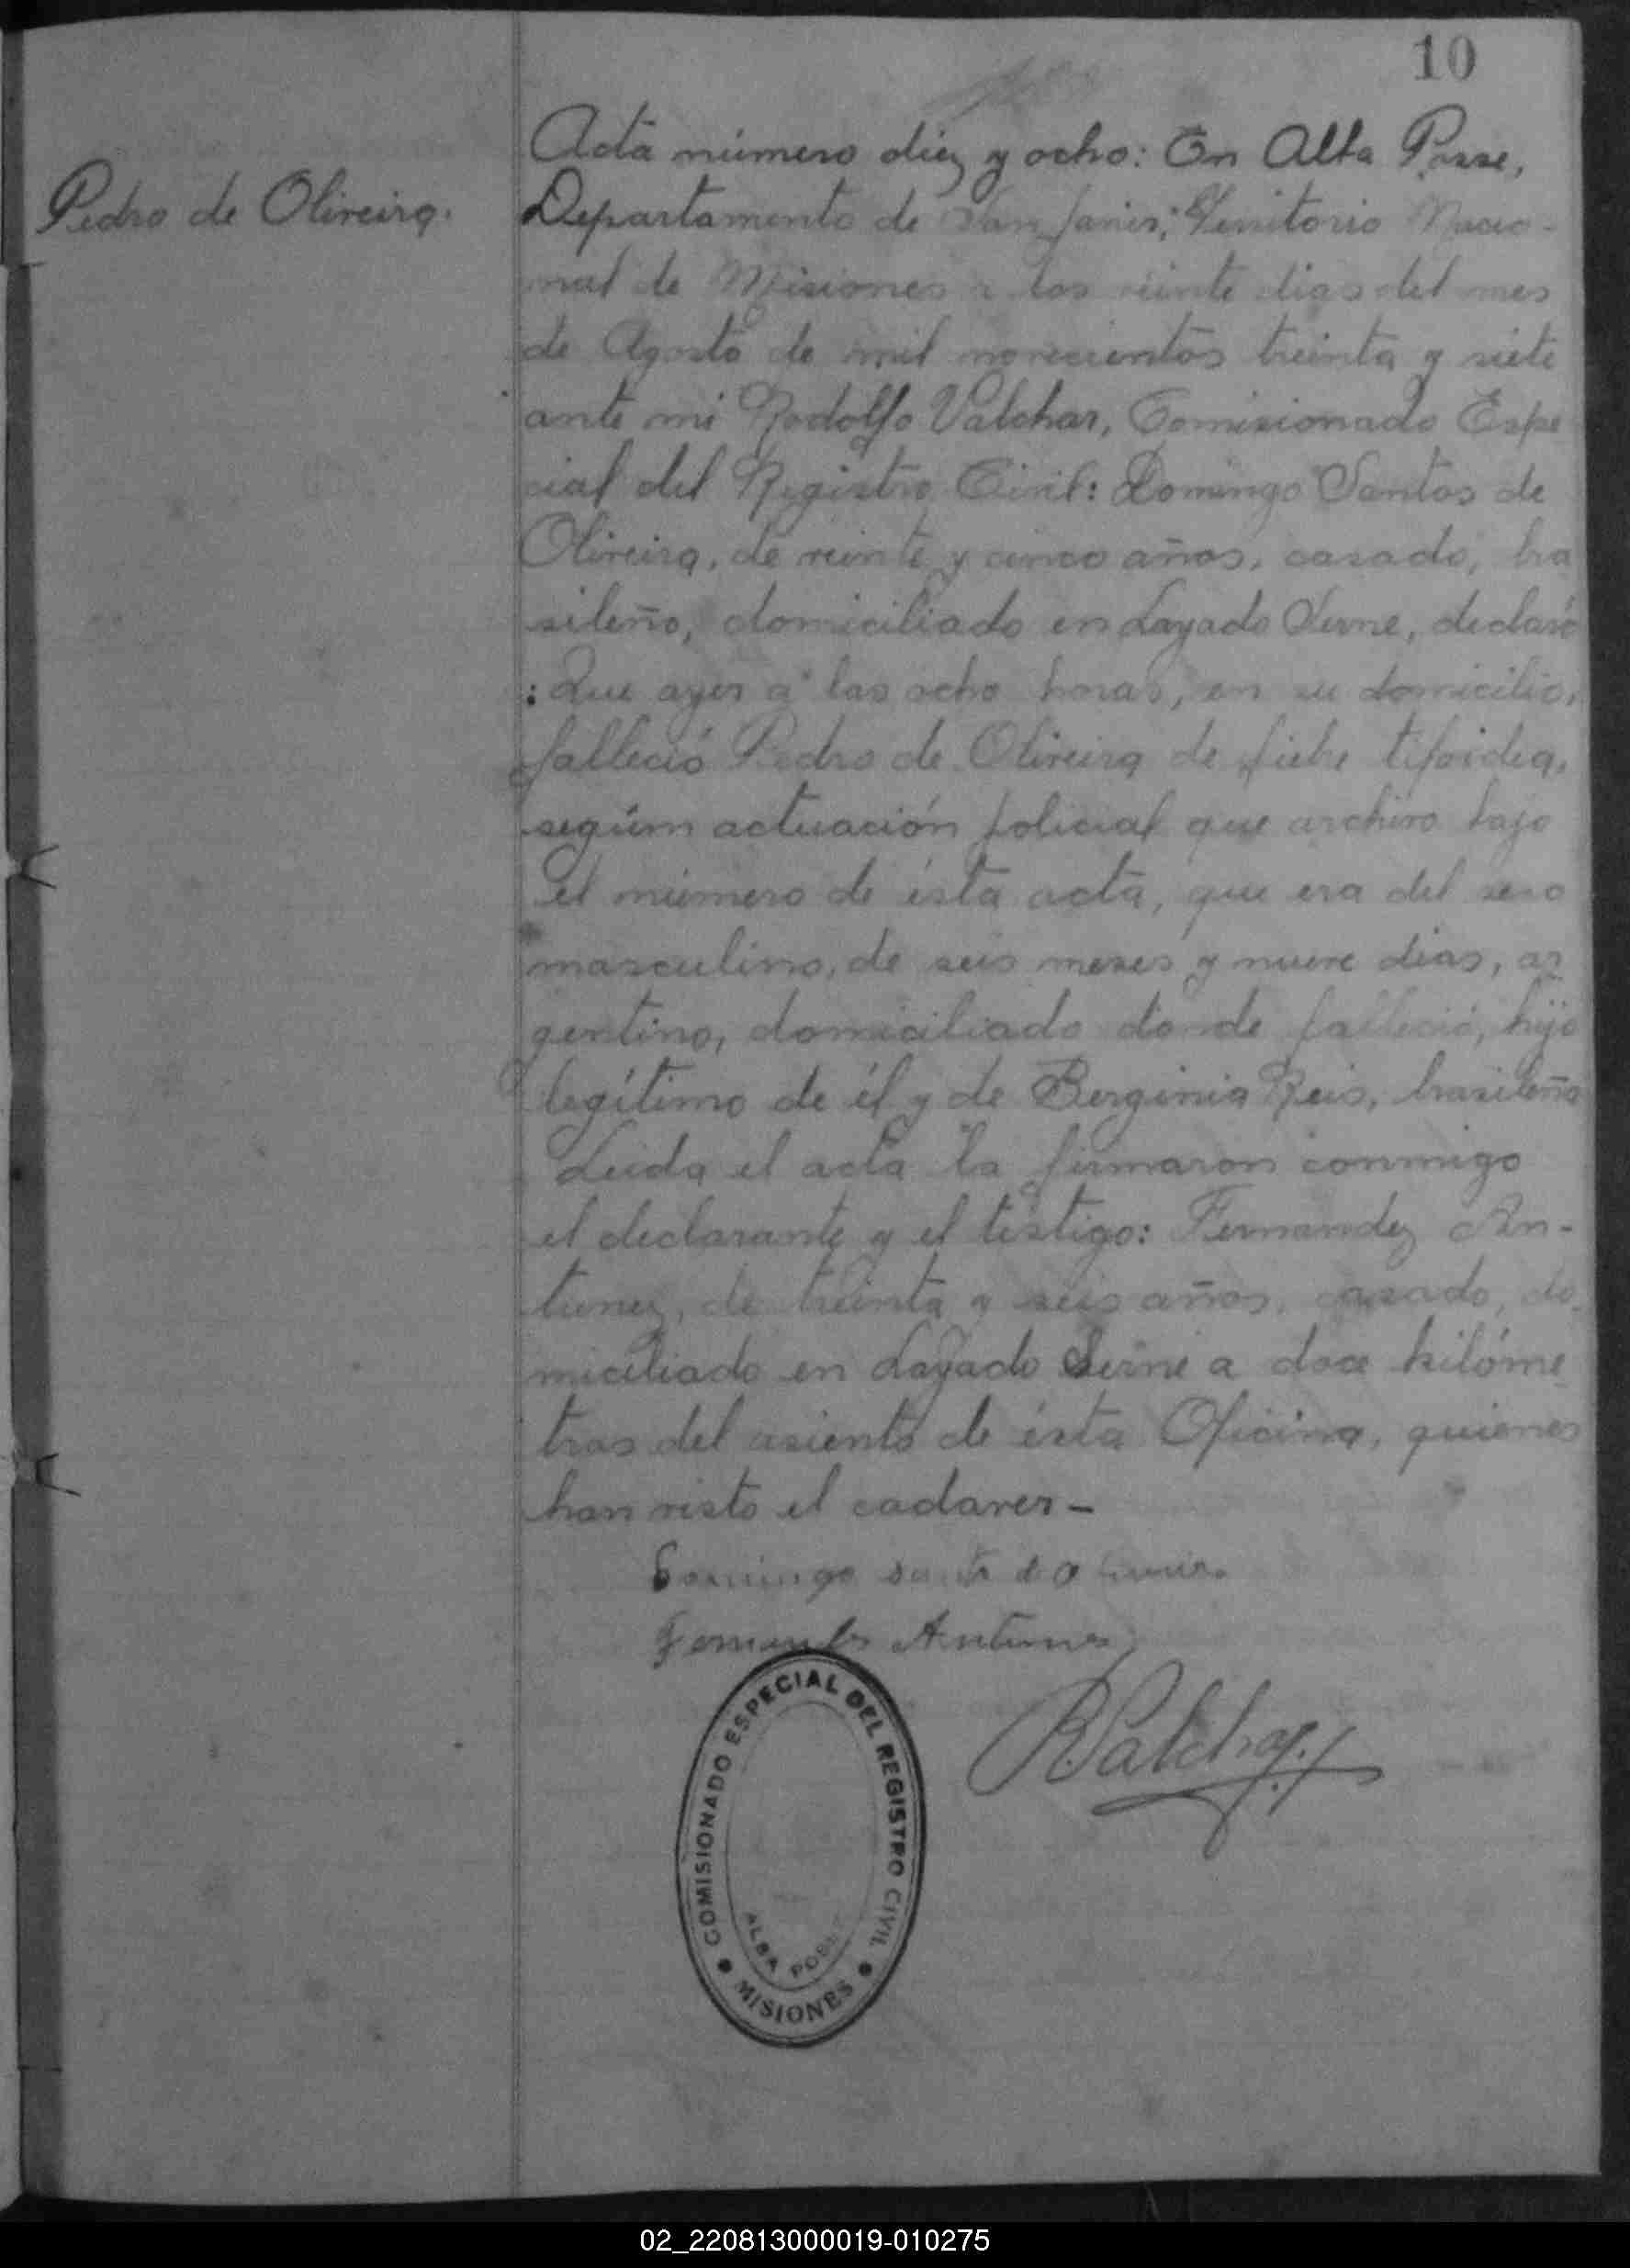 10
Pedro de Oliveira.
Acta número diez y ocho: En Alba Posse,
Departamento de San Javier, Territorio Nacio-
nal de Misiones a los veinte dias del mes
de Agosto de mil novecientos treinta y siete
ante mi Rodolfo Valchar, Comisionado Espe
cial del Registro Civil: Domingo Santos de
Oliveira, de veinte y cinco años, casado, bra
sileño, domiciliado en Layado Serne, declaró
: Que ayer a las ocho horas, en su domicilio,
falleció Pedro de Oliveira de fiebre tifoidea,
segúm actuación policial que archivo bajo
el número de ésta acta, que era del sexo
masculino, de seis meses y nueve dias, ar
gentino, domiciliado donde falleció, hijo
legítimo de él y de Berginia Reis, brasileña
Leida el acta la firmaron conmigo
el declarante y el testigo: Fernandez An-
tunez, de treinta y seis años, casado, do
miciliado en Layado Serne a doce kilóme
tros del asiento de ésta Oficina, quienes
han visto el cadaver-
Domingo
Antunes
RValchar
COMISIONADO ESPECIAL DEL REGISTRO CIVIL
ALBA POSSE
MISIONES
02_220813000019-010275